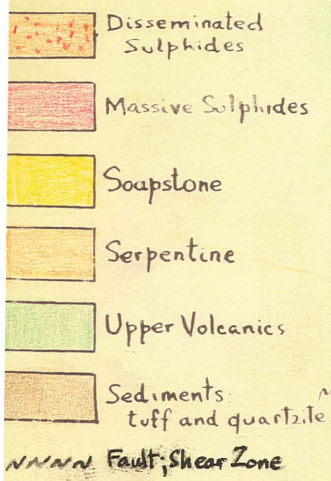 Disseminated
Sulphides
Massive Sulphides
Soapstone
Serpentine
Upper Volcanics
Sediments:
tuff and quartzite
Fault; Shear Zone